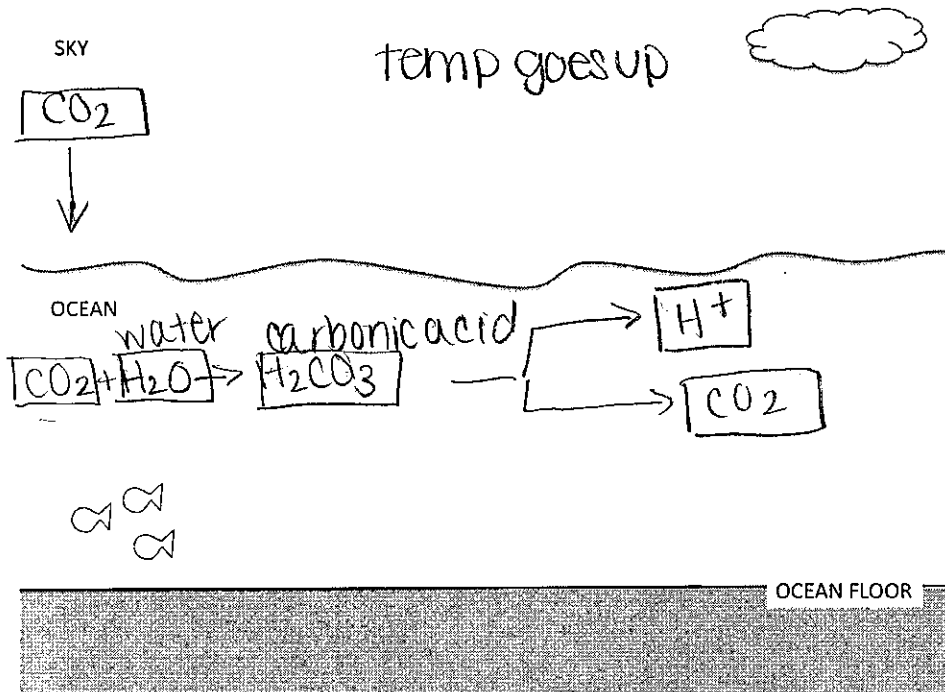 SKY
temp goes up
CO2
OCEAN
water carbonic acid
H+
CO2 + H2O → H2CO3
CO2
OCEAN FLOOR